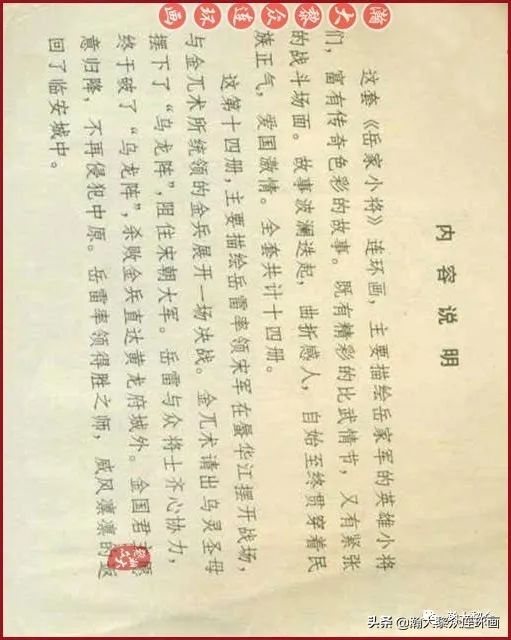 瀚大黎众连环画
内容说明
这套《岳家小将》连环画，主要描绘岳家军的英雄小将
们，富有传奇色彩的故事。既有精彩的比武情节，又有紧张
的战斗场面。故事波澜迭起，曲折感人，自始至终贯穿着民
族正气，爱国激情。全套共计十四册。
这第十四册，主要描绘岳雷率领宋军在蜃华江摆开战场，
与金兀术所统领的金兵展开一场决战。金兀术请出乌灵圣母
摆下了“乌龙阵”，阻住宋朝大军。岳雷与众将士齐心协力，
终于破了“乌龙阵”，杀败金兵直达黄龙府城外。金国君主愿
意归降，不再侵犯中原。岳雷率领得胜之师，威风凛凛的返
回了临安城中。
头条 @瀚大黎众连环画